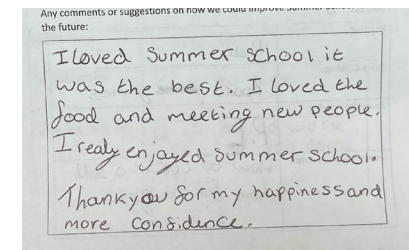 Any comments or suggestions on how we could improve Summer School
the future:
I loved Summer School it
was the best. I loved the
food and meeting new people.
I realy enjoyed summer school.
Thankyou for my happiness and
more confidence.